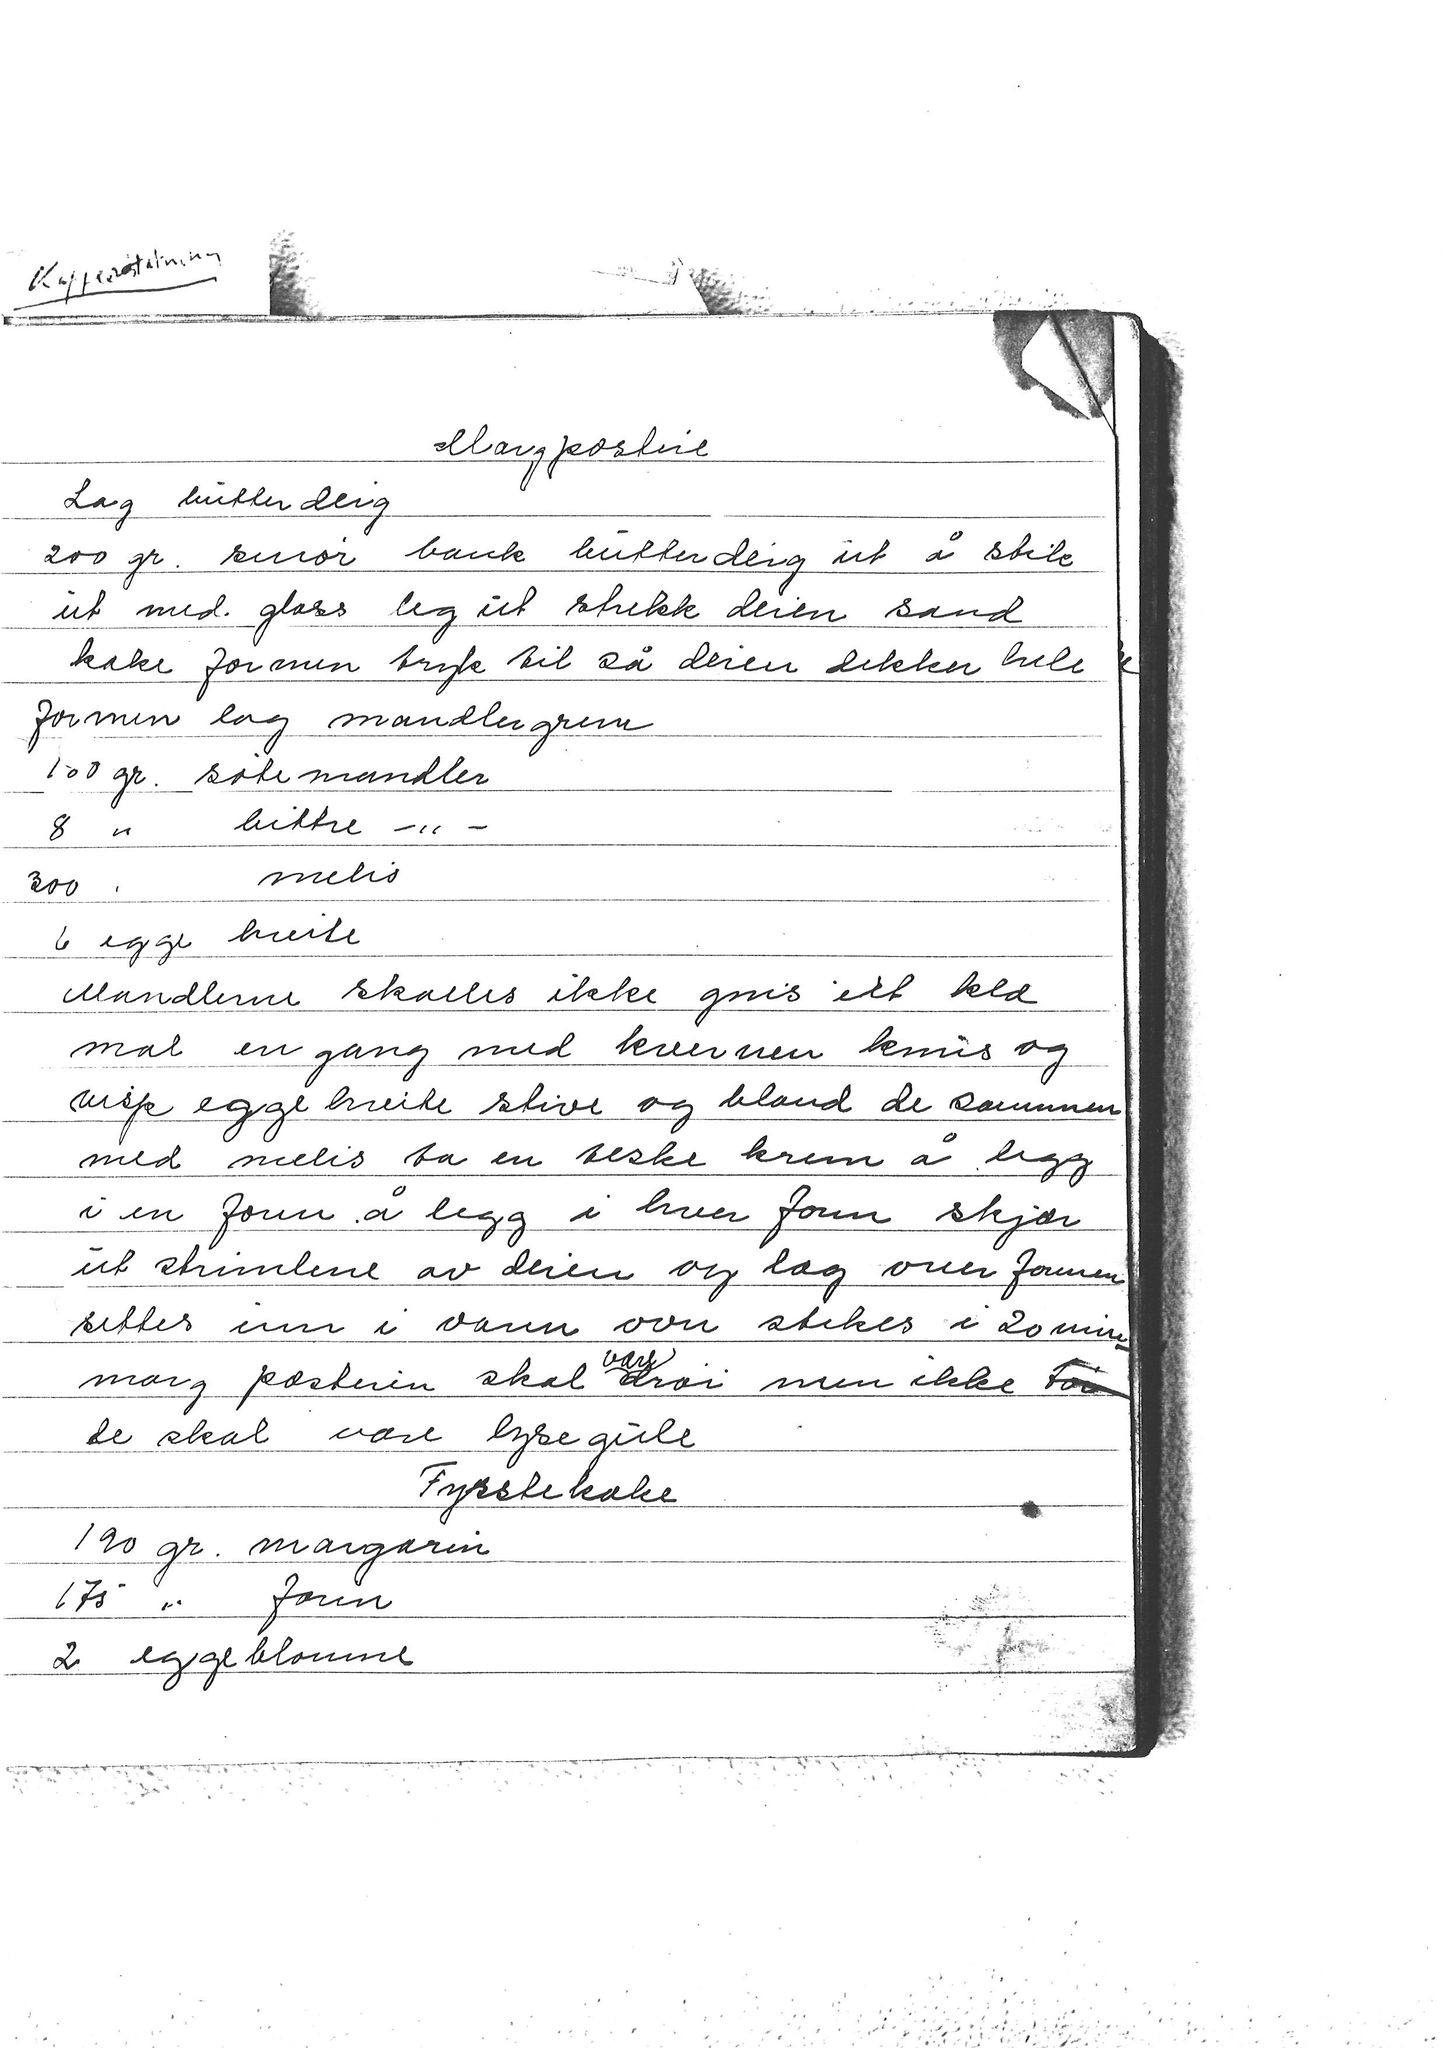 Margposteie
Lag butterdeig
200 gr. smør bank butterdeig ut å stik
ut med. glass leg ut strekk deien sand
kake formen tryk til så deien dekker hele
formen lag mandlegrem
100 gr. søte mandler
8 " bittre -"-
300 . melis
6 egge hvite
Mandlerne skolles ikke gnis i et kle
mal en gang med kvernen knus og
visp eggehvite stive og bland de sammen
med melis ta en teske krem å legg
i en form å legg i hver form skjær
ut strimlene av deien og lag over formen
settes inn i varm ovn stekes i 20 min
marg posteien skal være drøi men ikke tør
de skal være lyse gule
Fyrstekake
190 gr. margarin
175 " farin
2 eggeblomme